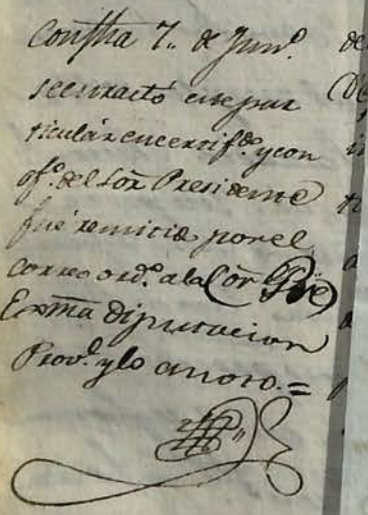 Con fha 7,, de Jun.º
se extractó este par
ticulár en certif.do y con
of.º del Sõr Presidente
fué remitido por el
correo ord.º a la
Exm̃a Diputacion
Prov.l y lo anoto. =